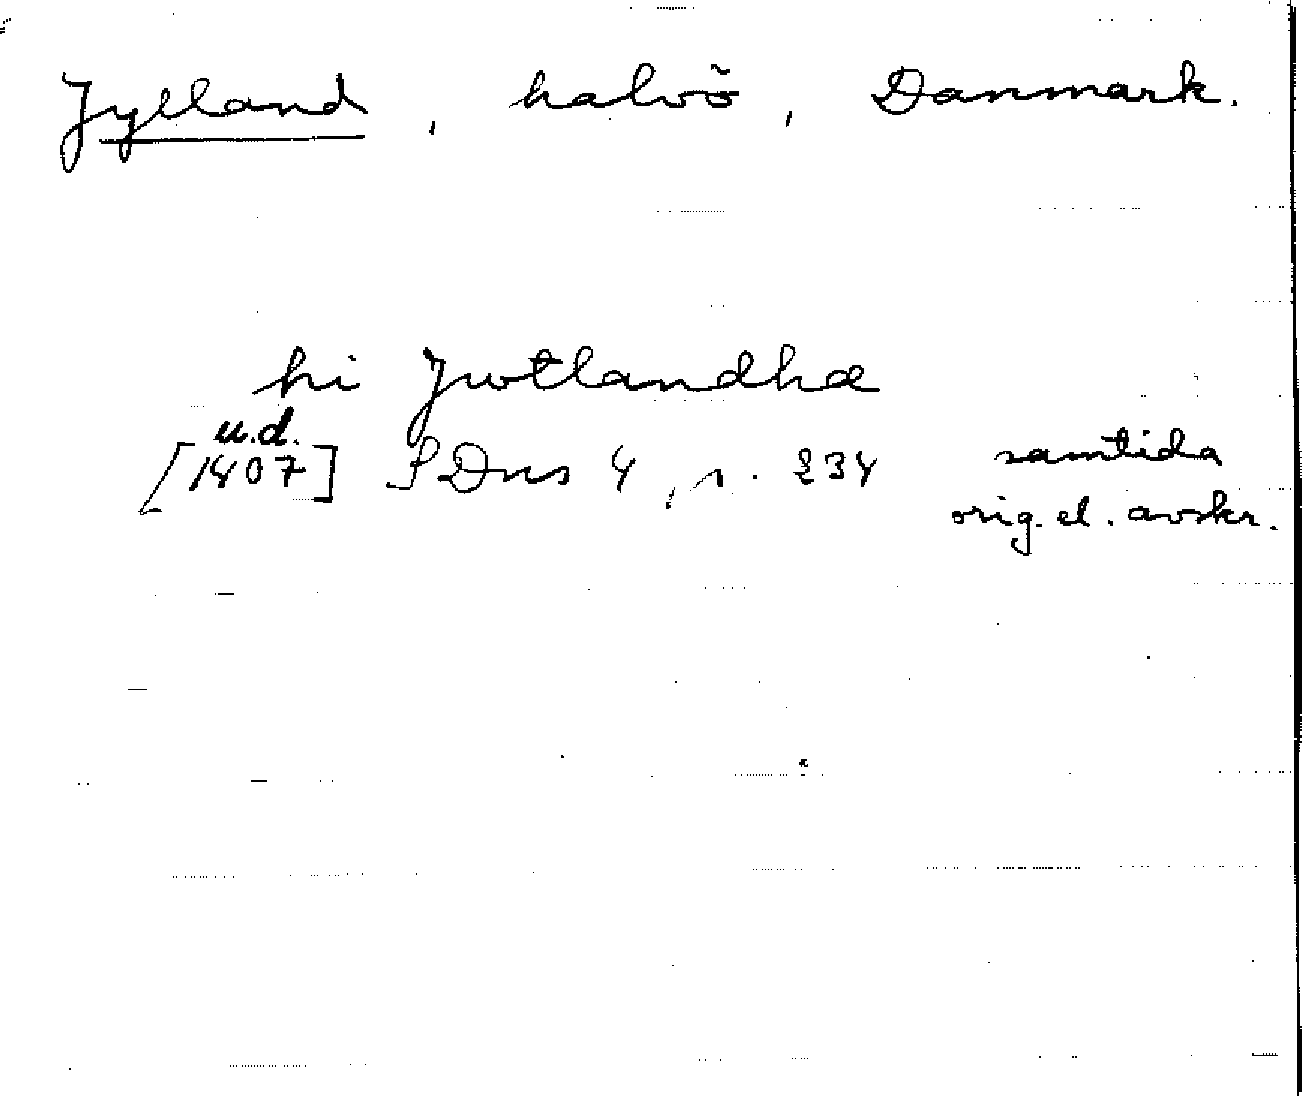 Jylland, halvö, Danmark.
hi Jwtlandhæ
u.d.
[1407] SDns 4, s. 234 samtida
orig. el. avskr.